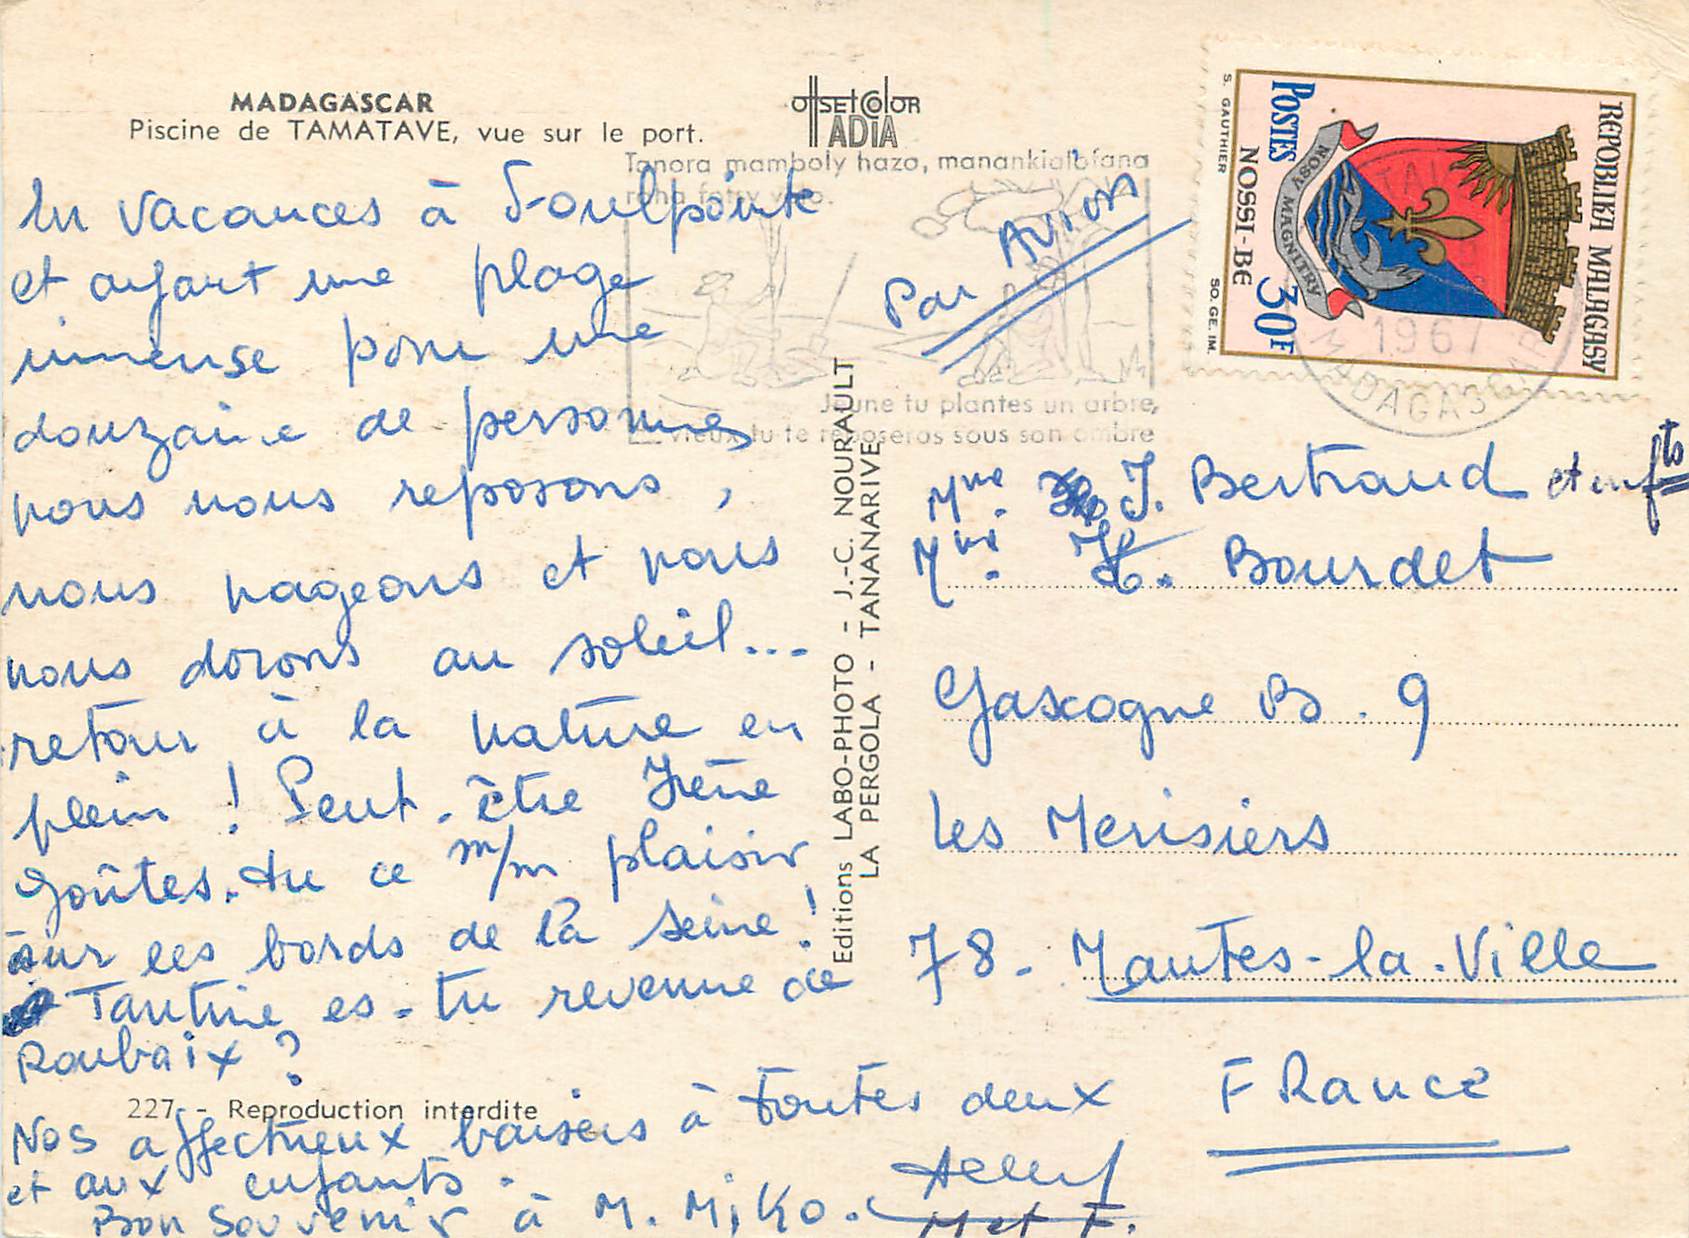 MADAGASCAR
Piscine de TAMATAVE, vue sur le port.
offset color
ADIA
Tanora mamboly hazo, manankialofana
raha fotsy volo.
Jeune tu plantes un arbre,
vieux tu te reposeras sous son ombre
Par Avion
REPOBLIKA MALAGASY
POSTES
NOSSI-BÉ
30F
NOSY MAGNITRY
S. GAUTHIER
SO. GE. IM.
1967
MADAGASCAR
En vacances à Foulpointe
et ayant une plage
immense pour une
douzaine de personnes
nous nous reposons,
nous nageons et nous
nous dorons au soleil...
retour à la nature en
plein ! Peut-être Irène
goûtes-tu ce m/m plaisir
sur les bords de la Seine !
Tantine es-tu revenue de
Roubaix ?
Nos affectueux baisers à toutes deux
et aux enfants.
Bon souvenir à M. Miko.
M et F.
227 - Reproduction interdite
Editions LABO-PHOTO - J.-C. NOURAULT
LA PERGOLA - TANANARIVE
Mme J. Bertrand et enfts
Mme H. Bourdet
Gascogne B. 9
Les Merisiers
78. Mantes-la-Ville
FRance